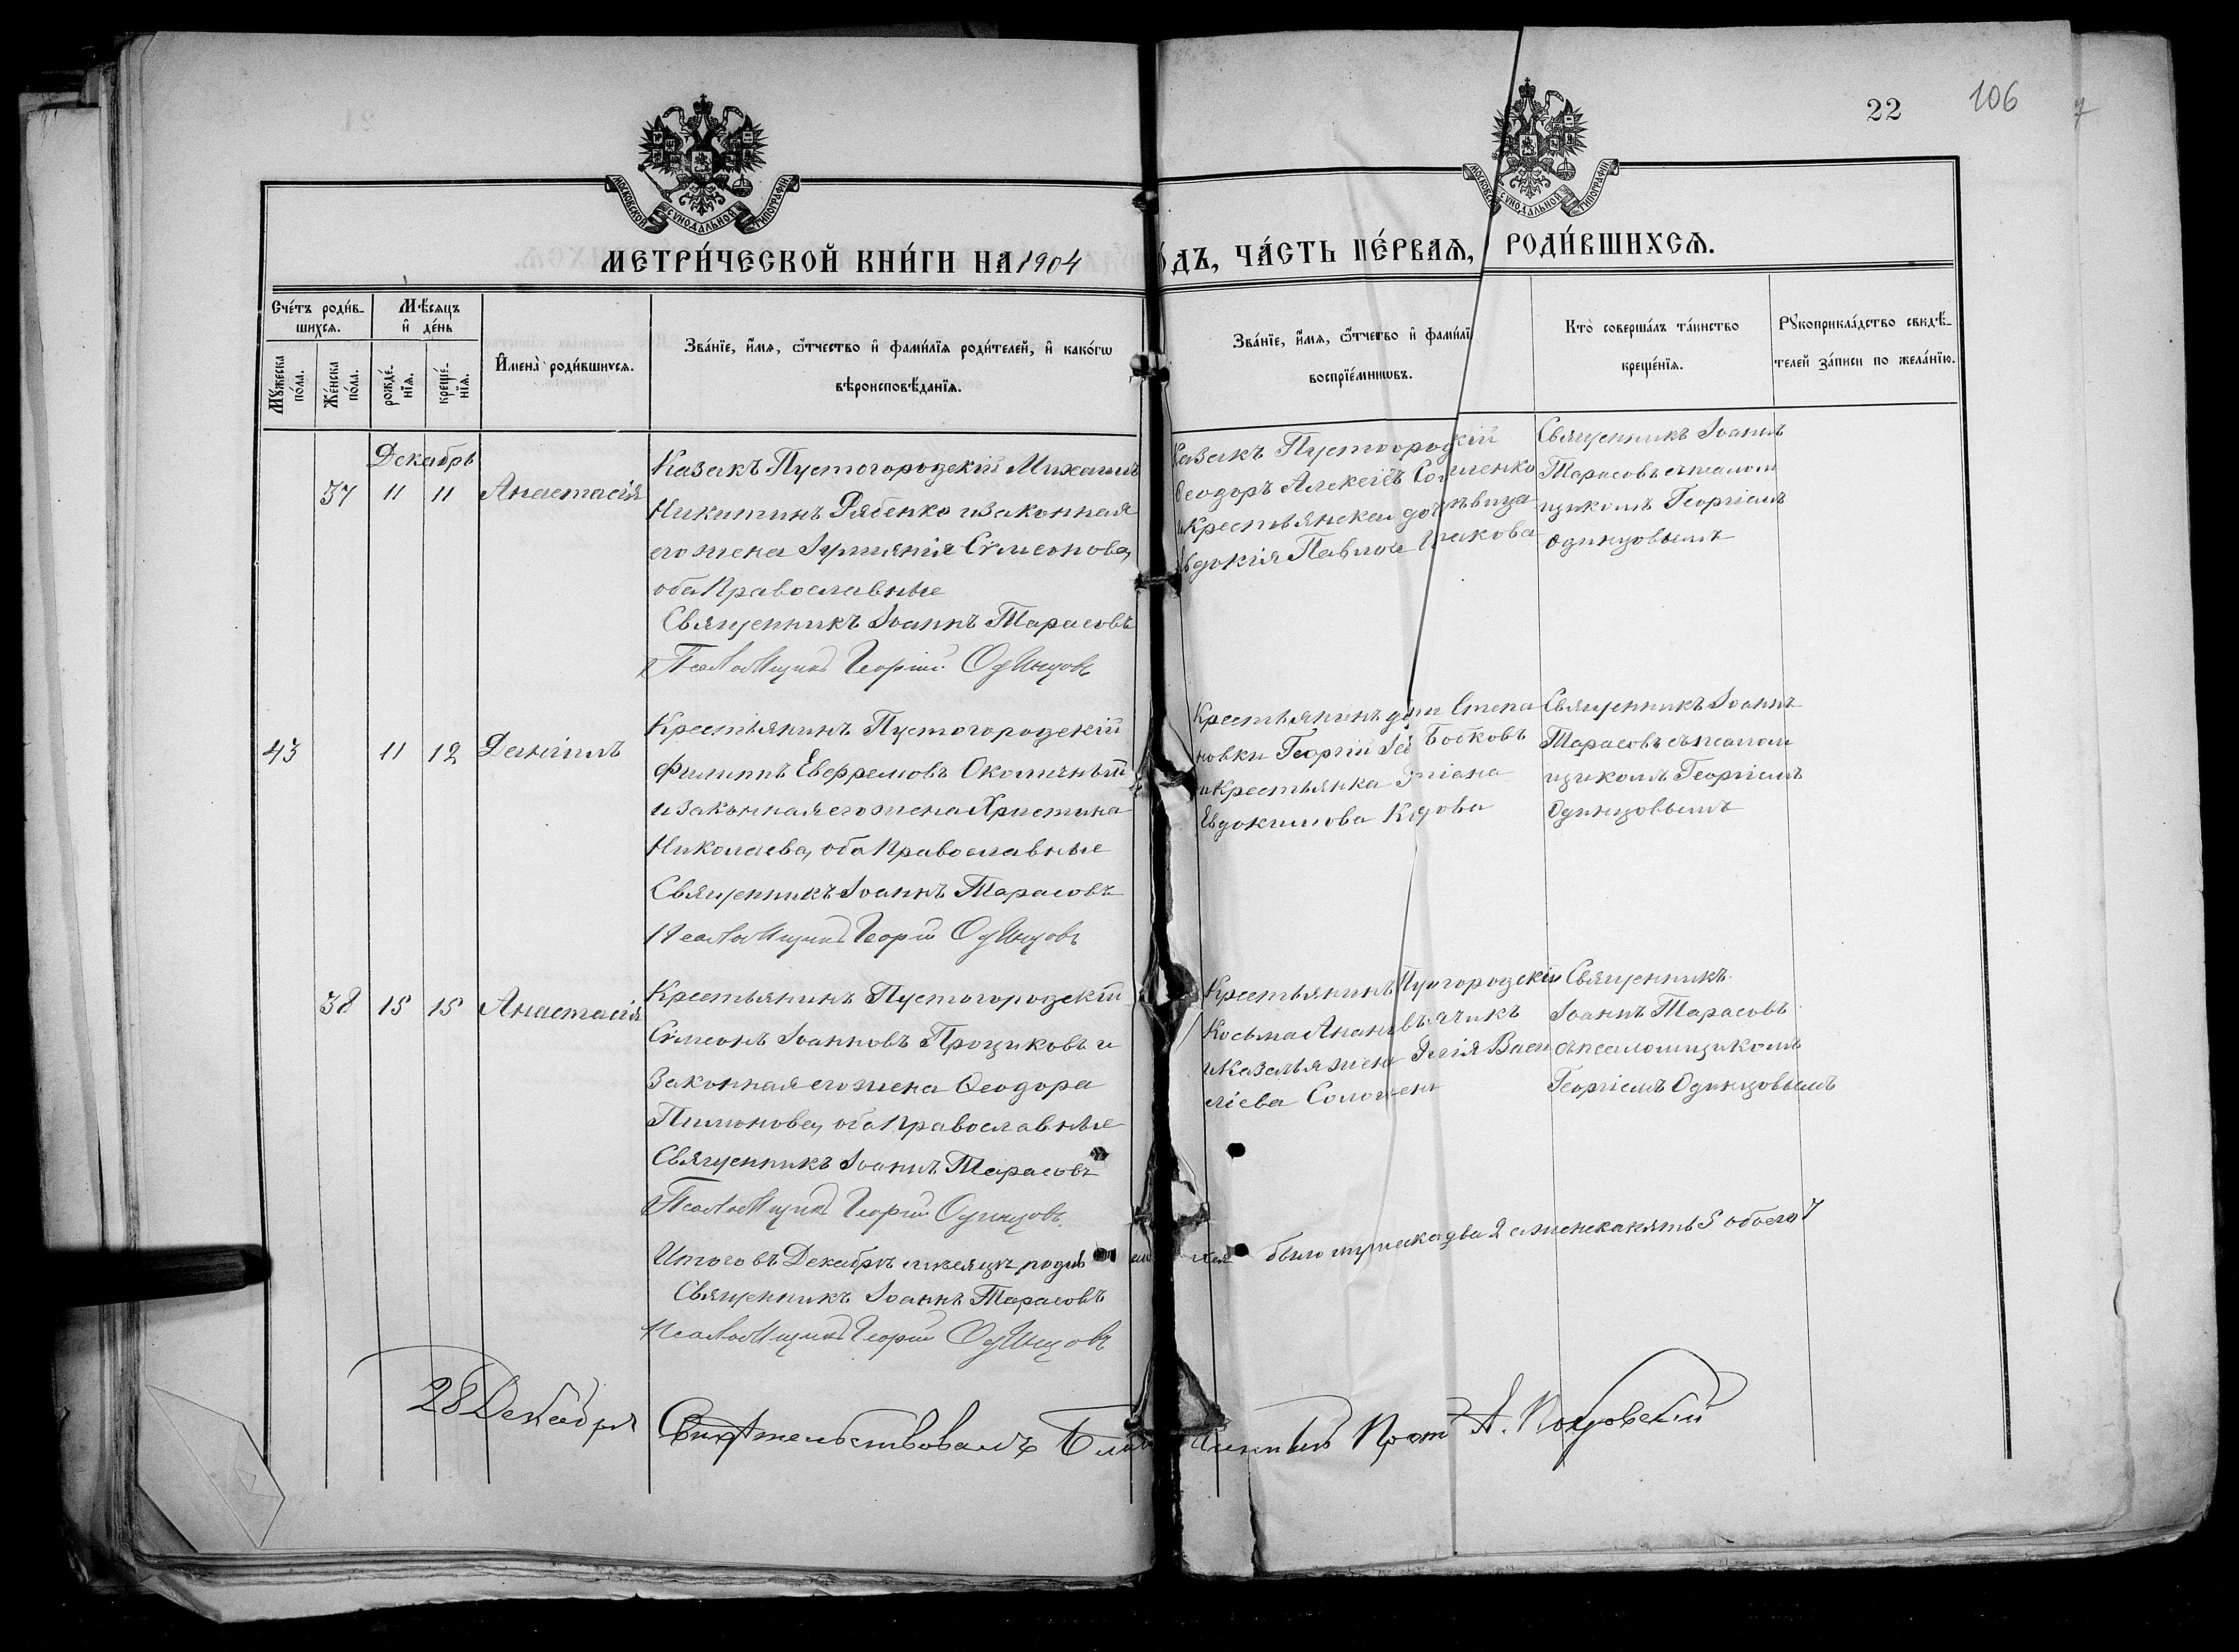 22
106
МОСКОВСКОЙ СѴНОДАЛЬНОЙ ТИПОГРАФІИ
МОСКОВС СѴНОДАЛЬНОЙ ТИПОГРАФІИ
МЕТРИ́ЧЕСКОЙ КНИ́ГИ НА 1904
ДЪ, ЧА́СТЬ ПЕ́РВАЯ, РОДИ́ВШИХСѦ.
Сче́тъ роди́в-
шихсѧ.
Мꙋжеска по́ла.
Же́нска по́ла.
Мѣ́сѧцъ
и҆ де́нь
рожде́-нїѧ.
креще́-нїѧ.
И҆мена̀ роди́вшихсѧ.
Зва́нїе, и҆́мѧ, ѻ҆́тчество и҆ фами́лїѧ роди́телей, и҆ како́гѡ
вѣроисповѣ́данїѧ.
Зва́нїе, и҆́мѧ, ѻ҆́тчество и҆ фами́лї
воспрїе́мникѡвъ.
Кто̀ соверша́лъ та́инство
креще́нїѧ.
Рꙋкоприкла́дство свидѣ́-
телей за́писи по жела́нїю.
Декабрь
37 11 11 Анастасія
Казакъ Пустогородскій Михаилъ
Никитинъ Рябенко и законная
его жена Сѵмеонова,
оба Православные
Священникъ Іоаннъ Тарасовъ
Псаломщикъ Георгій Одинцовъ
Казакъ Пустогород кій
Ѳеодоръ Алексіевъ
и Крестьянская
Евдокія
Священникъ Іоаннъ
Тарасовъ съ псалом
щикомъ Георгіемъ
Одинцовымъ
43 11 12 Даніилъ
Крестьянинъ Пустогородскій
Филиппъ Евфремовъ Околичный
и законная его жена Христина
Николаева, оба Православные
Священникъ Іоаннъ Тарасовъ
Псаломщикъ Георгій Одинцовъ
Крестьянинъ Степа
новки Георгій Бобковъ
и Крестьянка
Евдокимова
Священникъ Іоаннъ
Тарасовъ съ псалом
щикомъ Георгіемъ
Одинцовымъ
38 15 15 Анастасія
Крестьянинъ Пустогородскій
Сѵмеонъ Іоанновъ Прощиковъ и
законная его жена Ѳеодора
Пимонова, оба Православные
Священникъ Іоаннъ Тарасовъ
Псаломщикъ Георгій Одинцовъ
Крестьянинъ Пу огородскій
Косьма
и Казачья жена Васи
ліева
Священникъ
Іоаннъ Тарасовъ
съ псаломщикомъ
Георгіемъ Одинцовымъ
Итого въ Декабрѣ мѣсяцѣ роди
было мужеска два 2 а женска пять 5 обоего 7
Священникъ Іоаннъ Тарасовъ
Псаломщикъ Георгій Одинцовъ
28 Декабря
Свидѣтельствовалъ Прот А.